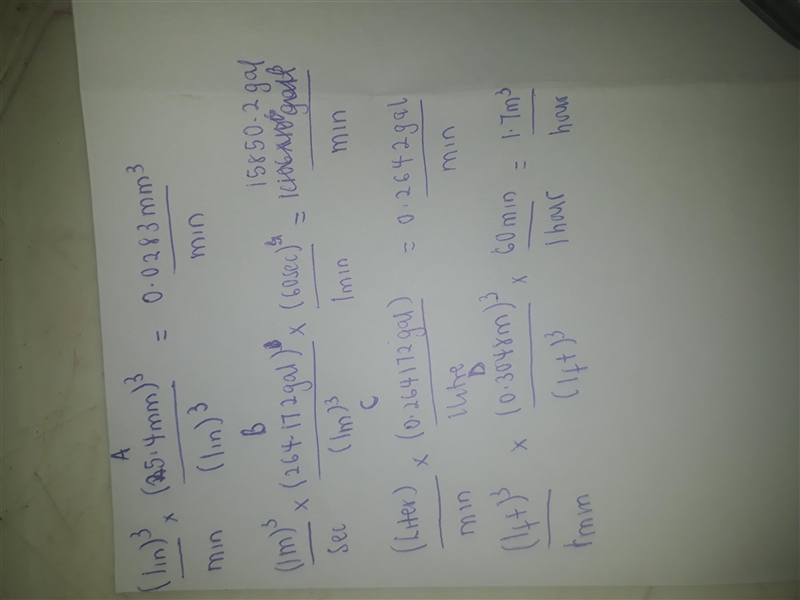 A
(1in)³/min × (25.4mm)³/(1in)³ = 0.0283mm³/min
B
(1m)³/sec × (264.172gal)/(1m)³ × (60sec)/1min = 15850.2gal/min
C
(Liter)/min × (0.264172gal)/1litre = 0.2642gal/min
D
(1ft)³/1min × (0.3048m)³/(1ft)³ × 60min/1hour = 1.7m³/hour